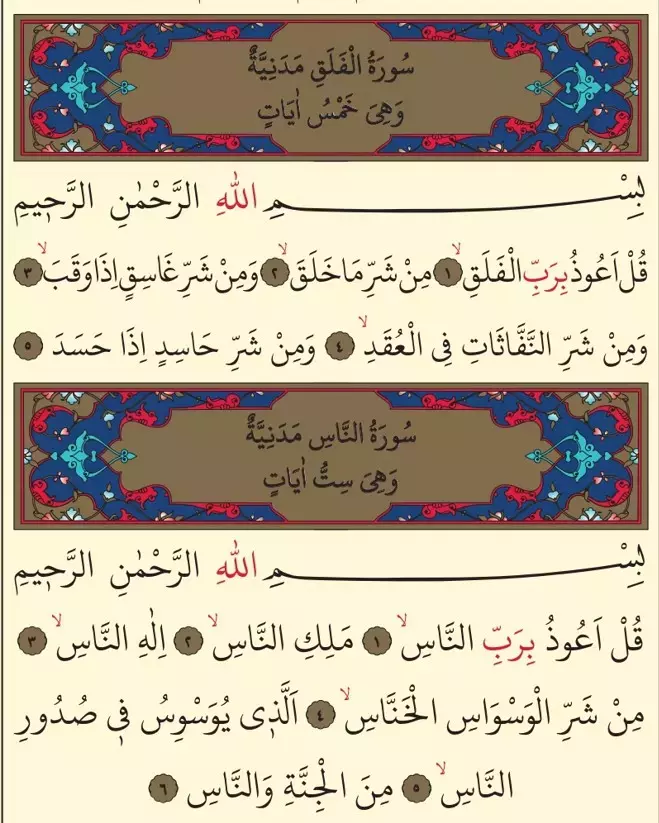 سُورَةُ الْفَلَقِ مَدَنِيَّةٌ
وَهِىَ خَمْسُ اٰيَاتٍ
بِسْمِ اللّٰهِ الرَّحْمٰنِ الرَّح۪يمِ
قُلْ اَعُوذُ بِرَبِّ الْفَلَقِۙ ١ مِنْ شَرِّ مَا خَلَقَۙ ٢ وَمِنْ شَرِّ غَاسِقٍ اِذَا وَقَبَۙ ٣
وَمِنْ شَرِّ النَّفَّاثَاتِ فِى الْعُقَدِۙ ٤ وَمِنْ شَرِّ حَاسِدٍ اِذَا حَسَدَ ٥
سُورَةُ النَّاسِ مَدَنِيَّةٌ
وَهِىَ سِتُّ اٰيَاتٍ
بِسْمِ اللّٰهِ الرَّحْمٰنِ الرَّح۪يمِ
قُلْ اَعُوذُ بِرَبِّ النَّاسِۙ ١ مَلِكِ النَّاسِۙ ٢ اِلٰهِ النَّاسِۙ ٣
مِنْ شَرِّ الْوَسْوَاسِ الْخَنَّاسِۙ ٤ اَلَّذ۪ى يُوَسْوِسُ ف۪ى صُدُورِ
النَّاسِۙ ٥ مِنَ الْجِنَّةِ وَالنَّاسِ ٦